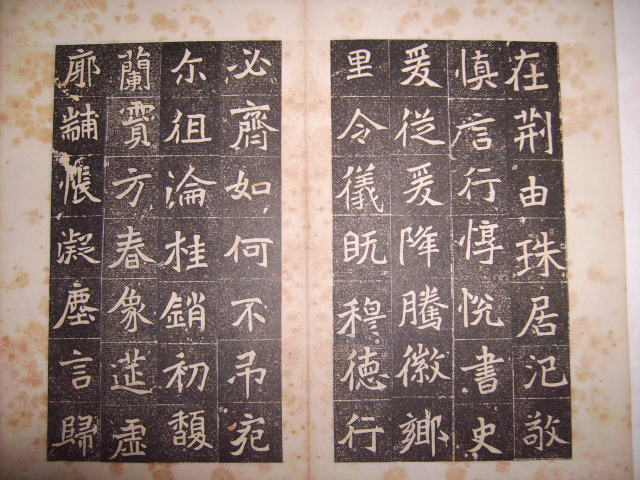 在荆由珠居汜敬
慎言行惇悅書史
爰從爰降騰徽鄉
里令儀既穆德行
必齊如何不弔宛
尒徂淪桂銷初馥
蘭霣方春象筵虛
廓黼帳凝塵言歸